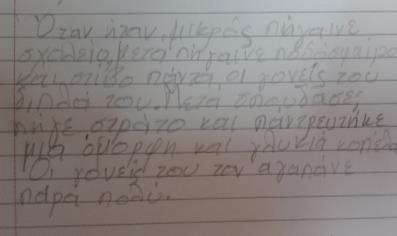 Όταν ήταν μικρός πήγαινε
σχολείο, μετά πήγαινε ποδόσφαιρο
και πάντα οι γονείς του
διπλά του. Μετά σπούδασε
πήγε στρατό και παντρεύτηκε
μια όμορφη και γλυκιά κοπέλα
Οι γονείς του τον αγαπάνε
πάρα πολύ.